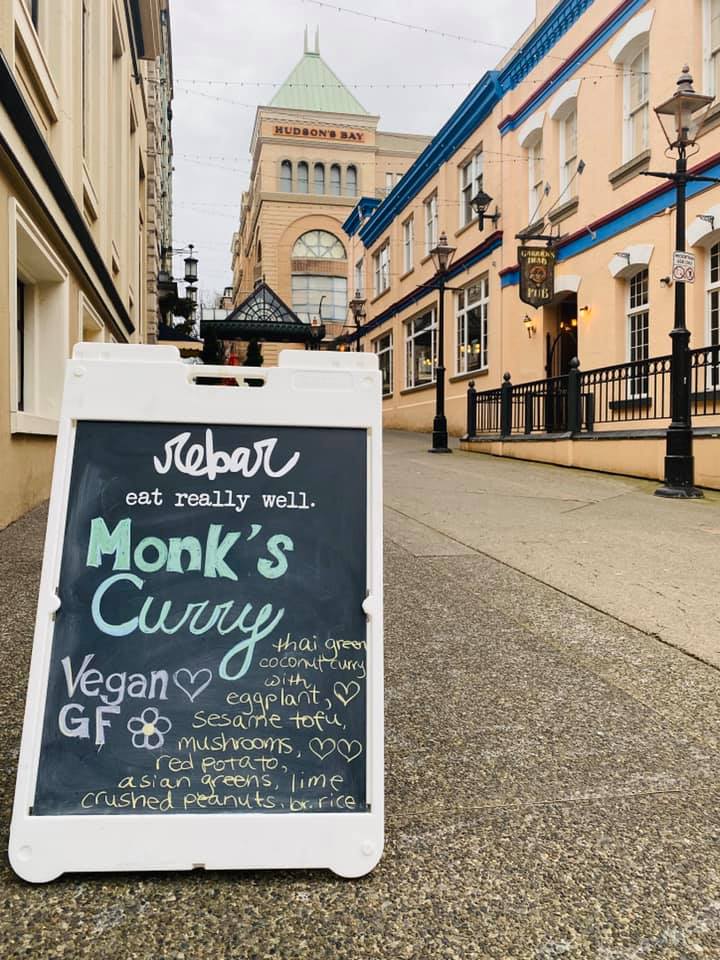 HUDSON'S BAY
GARRICK'S
HEAD
PUB
rebar
eat really well.
Monk's
Curry
Vegan
GF
thai green
coconut curry
with
eggplant,
sesame tofu,
mushrooms,
red potato,
asian greens, lime
crushed peanuts, br. rice